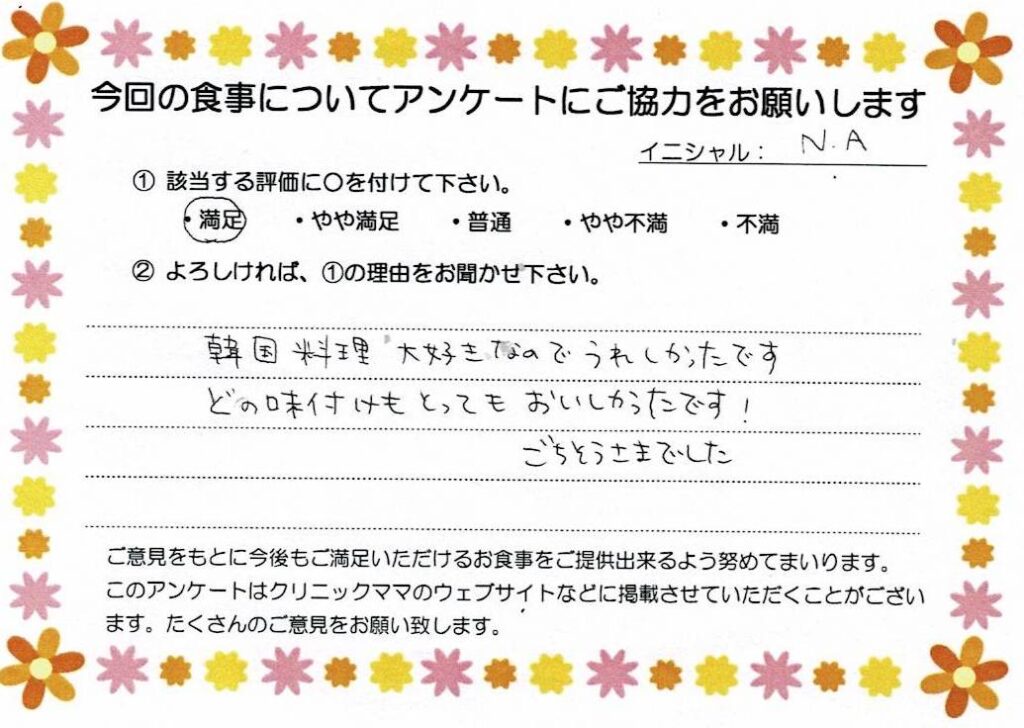 今回の食事についてアンケートにご協力をお願いします
イニシャル： N.A
① 該当する評価に〇を付けて下さい。
・満足 ・やや満足 ・普通 ・やや不満 ・不満
② よろしければ、①の理由をお聞かせ下さい。
韓国料理 大好きなのでうれしかったです
どの味付けもとっても おいしかったです！
ごちそうさまでした
ご意見をもとに今後もご満足いただけるお食事をご提供出来るよう努めてまいります。
このアンケートはクリニックママのウェブサイトなどに掲載させていただくことがござい
ます。たくさんのご意見をお願い致します。